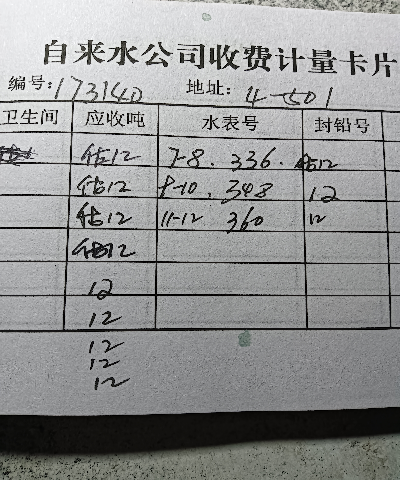 自来水公司收费计量卡片
编号:173140 地址: 4-501
卫生间 应收吨 水表号 封铅号
估12 7-8. 336. 估12
估12 9-10. 348 12
估12 11-12 360 12
估12
12
12
12
12
12